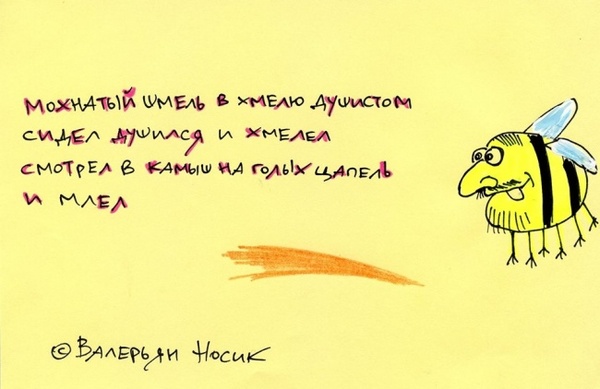 мохнатый шмель в хмелю душистом
сидел душился и хмелел
смотрел в камыш на голых цапель
и млел
© Валерьян Носик